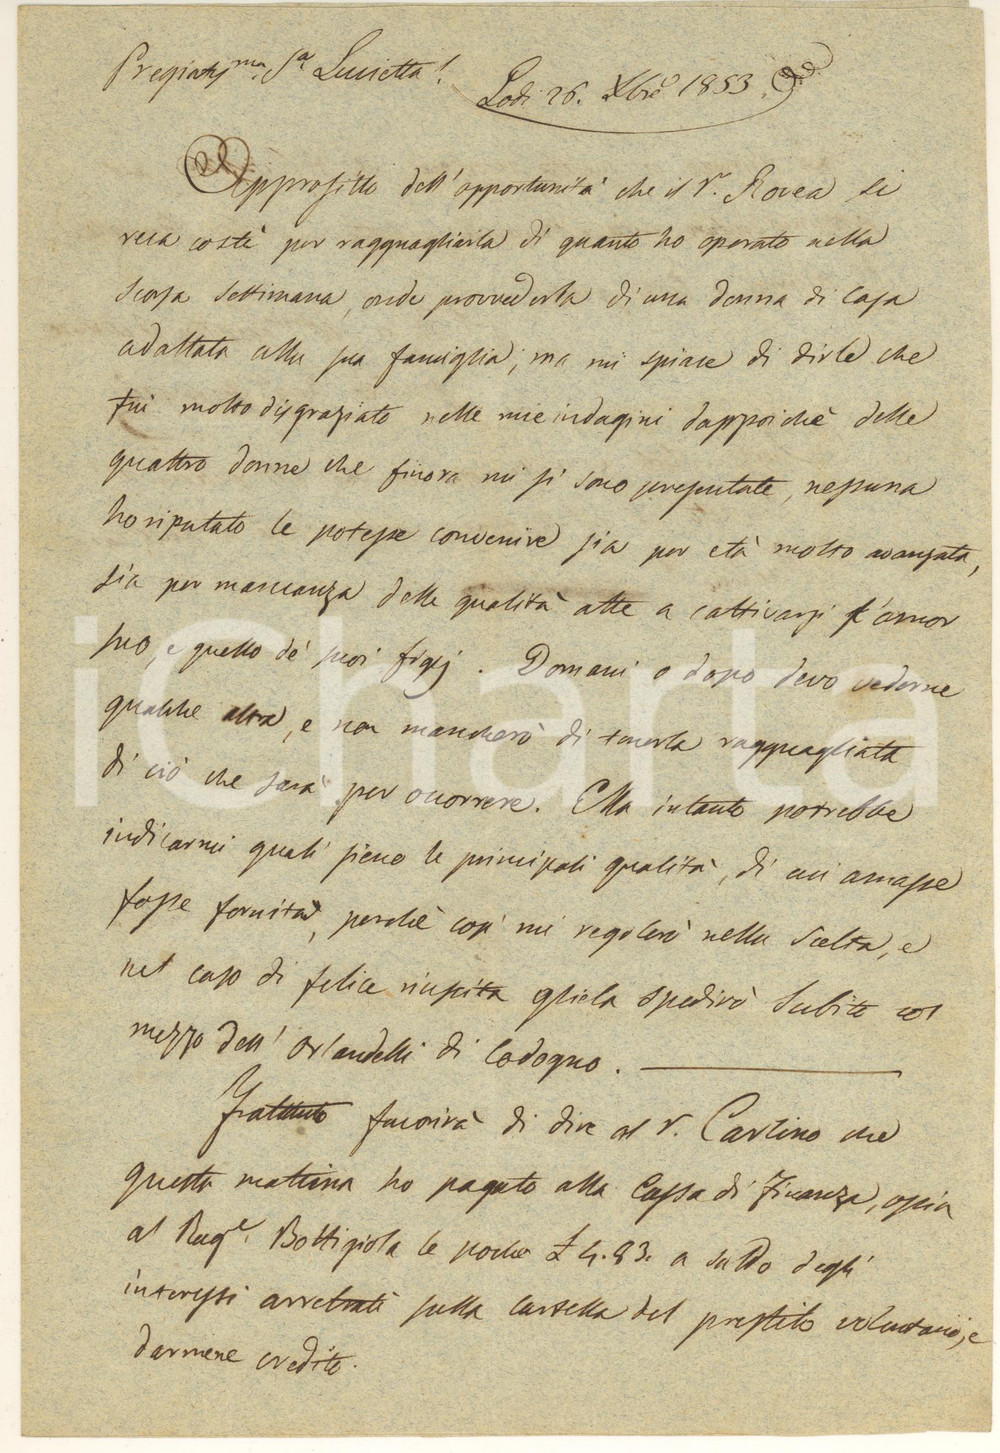 Pregiatis.ma S.a Lucietta!
Lodi 26. Xbre 1853.
Approfitto dell'opportunità che il S.r Rovea si
reca costì per ragguagliarla di quanto ho operato nella
scorsa settimana, onde provvederla di una donna di casa
adattata alla sua famiglia; ma mi spiace di dirle che
fui molto disgraziato nelle mie indagini dappoichè delle
quattro donne che finora mi si sono presentate, nessuna
ho riputato le potesse convenire sia per età molto avanzata,
sia per mancanza delle qualità atte a cattivarsi l'amor
suo, e quello de' suoi figlj. Domani o dopo devo vederne
qualche altra, e non mancherò di tenerla ragguagliata
di ciò che sarà per occorrere. Ella intanto potrebbe
indicarmi quali sieno le principali qualità, di cui amasse
fosse fornita, perchè così mi regolerò nella scelta, e
nel caso di felice riuscita gliela spedirò subito col
mezzo dell'Orlandelli di Codogno.
Frattanto favorirà di dire al S.r Carlino che
questa mattina ho pagato alla Cassa di Finanza, ossia
al Rag.e Bottigiola le poche £ 4.83. a saldo degli
interessi arretrati sulla cartella del prestito volontario, e
darmene credito.
iCharta